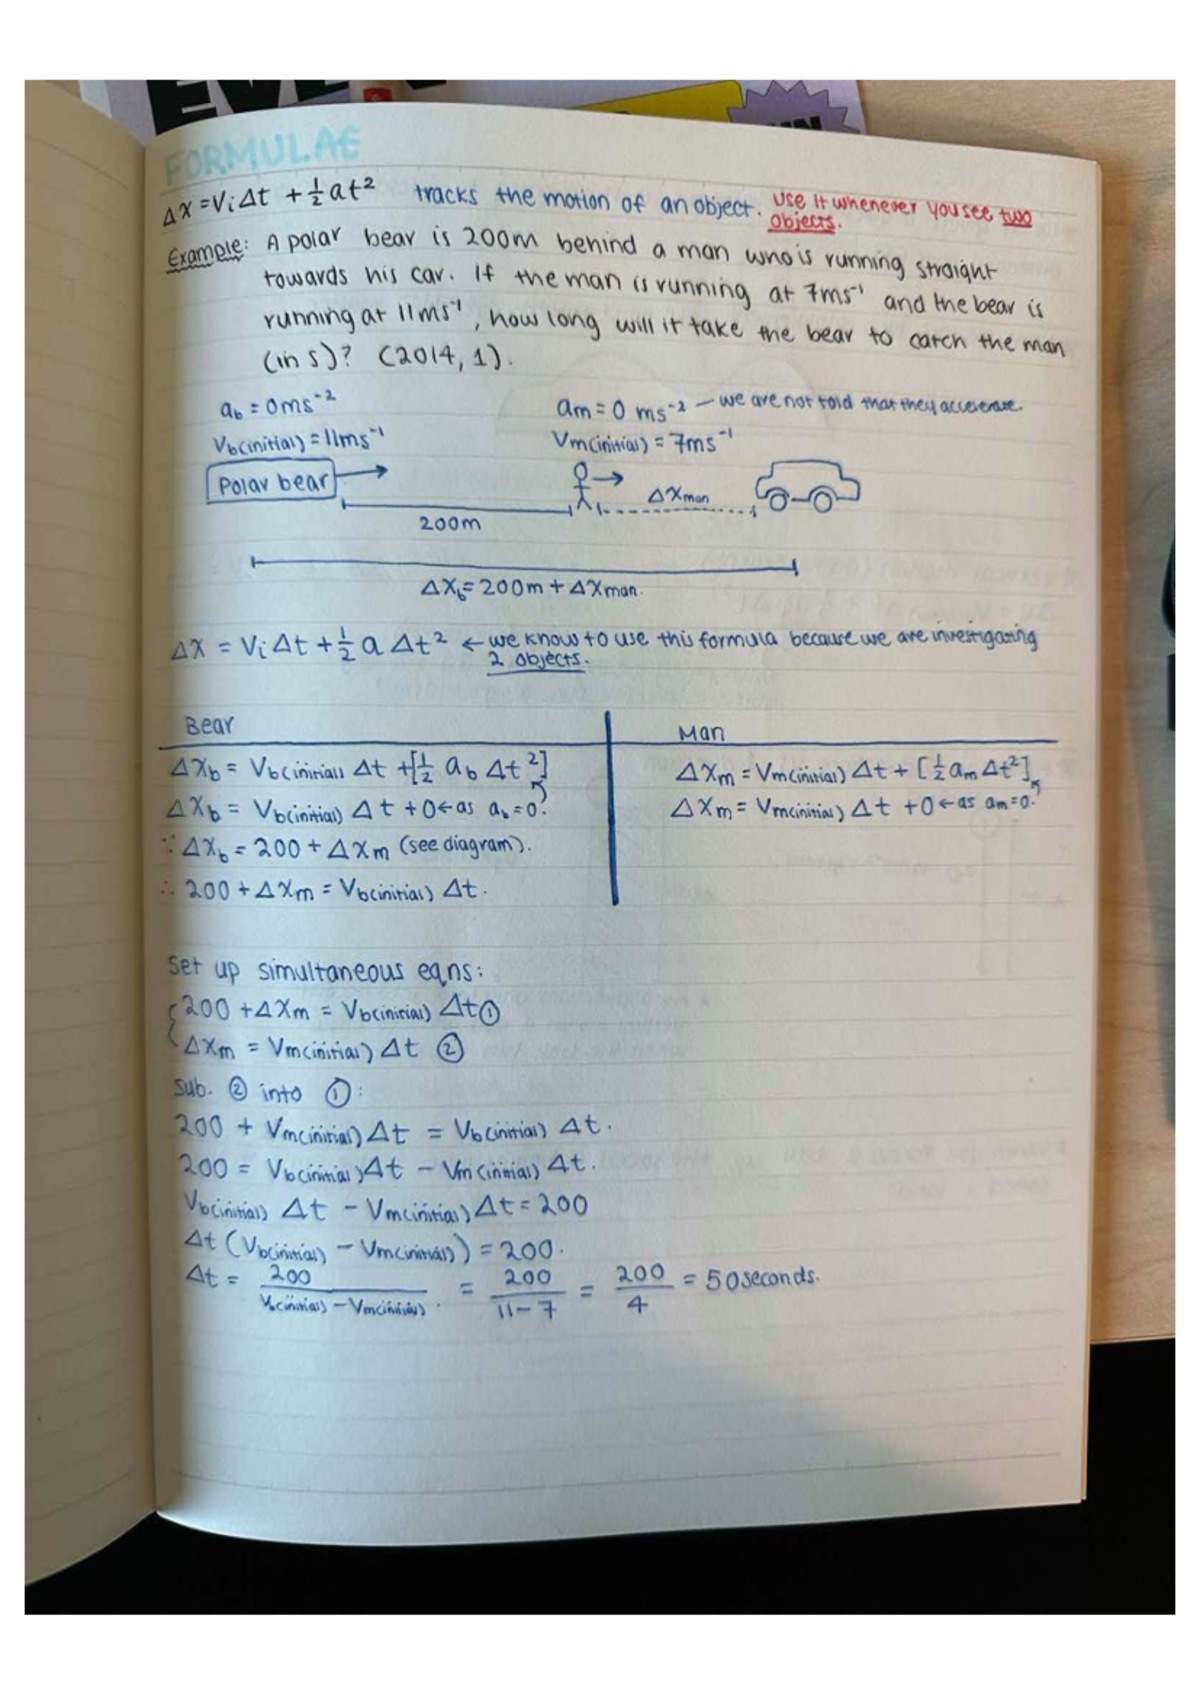 EVE
FORMULAE
Δx = ViΔt + ½at² tracks the motion of an object. Use it whenever you see two
objects.
Example: A polar bear is 200m behind a man who is running straight
towards his car. If the man is running at 7ms⁻¹ and the bear is
running at 11ms⁻¹, how long will it take the bear to catch the man
(in s)? (2014, 1).
ab = 0ms⁻² am = 0 ms⁻² — we are not told that they accelerate.
Vb(initial) = 11ms⁻¹ Vm(initial) = 7ms⁻¹
Polar bear → → Δxman
200m
Δxb = 200m + Δxman.
Δx = ViΔt + ½ a Δt² ← we know to use this formula because we are investigating
2 objects.
Bear Man
Δxb = Vb(initial) Δt + [½ ab Δt²] Δxm = Vm(initial) Δt + [½ am Δt²]
Δxb = Vb(initial) Δt + 0 ← as ab = 0. Δxm = Vm(initial) Δt + 0 ← as am = 0.
∵ Δxb = 200 + Δxm (see diagram).
∴ 200 + Δxm = Vb(initial) Δt.
Set up simultaneous eqns:
{200 + Δxm = Vb(initial) Δt ①
Δxm = Vm(initial) Δt ②
Sub. ② into ①:
200 + Vm(initial) Δt = Vb(initial) Δt.
200 = Vb(initial) Δt − Vm(initial) Δt.
Vb(initial) Δt − Vm(initial) Δt = 200
Δt (Vb(initial) − Vm(initial)) = 200.
Δt = 200 / Vb(initial) − Vm(initial). = 200 / 11 − 7 = 200 / 4 = 50 seconds.